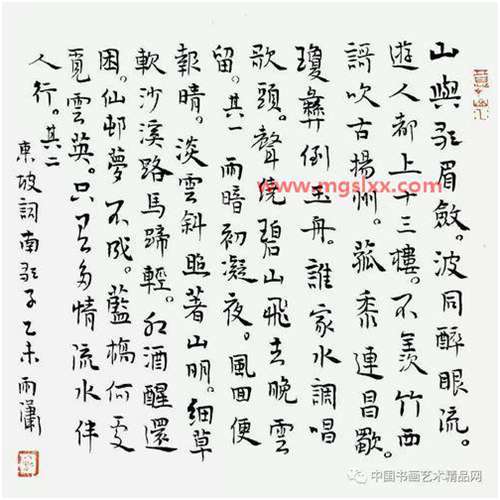 山與歌眉斂。波同醉眼流。
遊人都上十三樓。不羨竹西
謌吹古揚州。菰黍連昌歜。
瓊彝倒玉舟。誰家水調唱
歌頭。聲繞碧山飛去晚雲
留。其一 雨暗初凝夜。風回便
報晴。淡雲斜照著山明。細草
軟沙溪路馬蹄輕。卯酒醒還
困。仙邨夢不成。藍橋何處
覓雲英。只有多情流水伴
人行。其二
東坡詞南歌子乙未雨瀟
www.mgslxx.com
中国书画艺术精品网